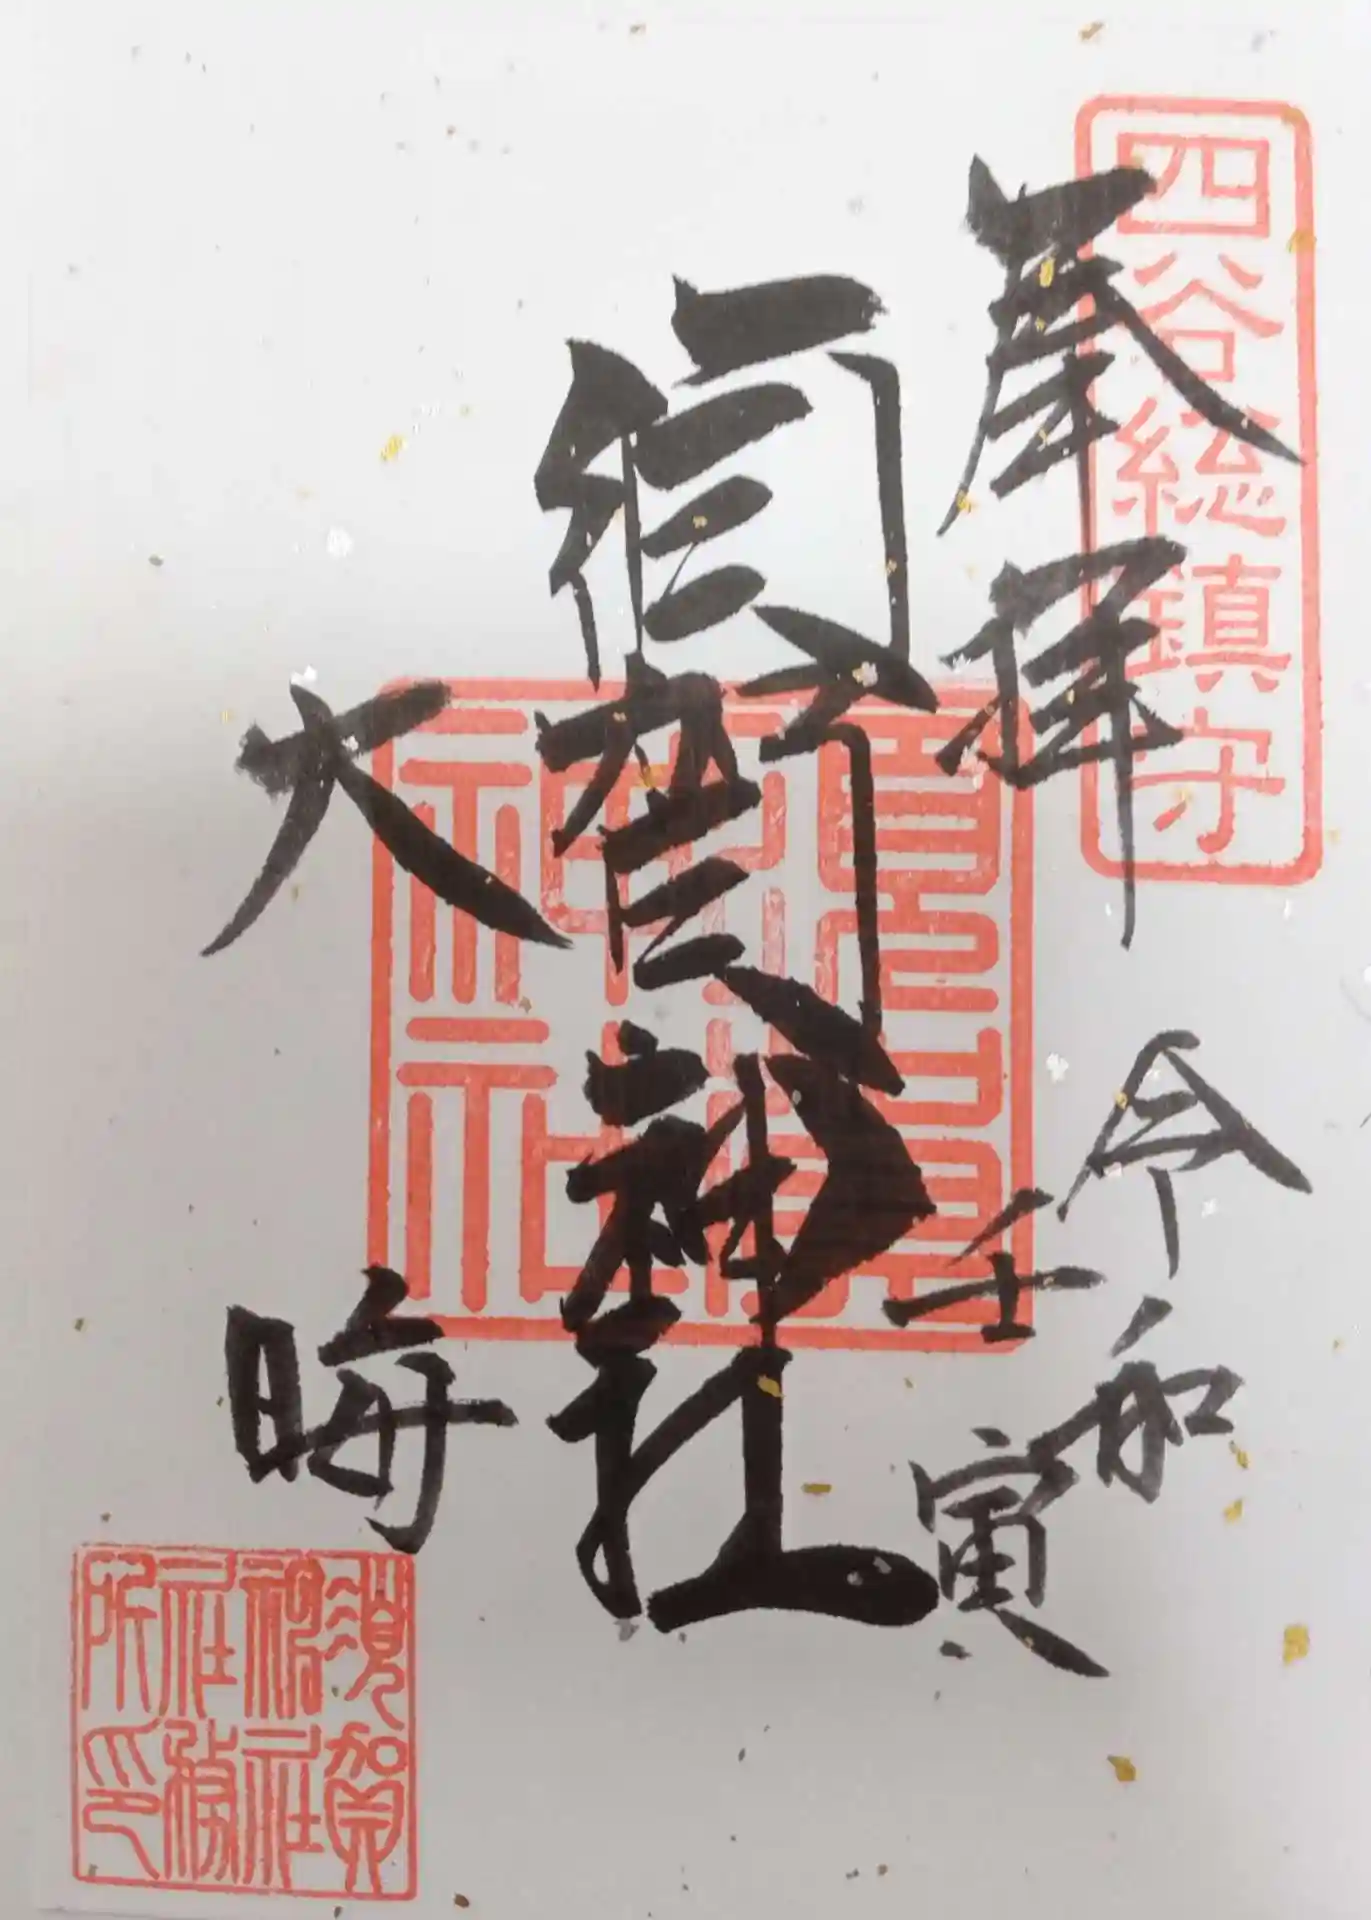 四谷総鎮守
奉拝
令和
壬寅
須賀神社
大晦
須賀
神社
社務
所印